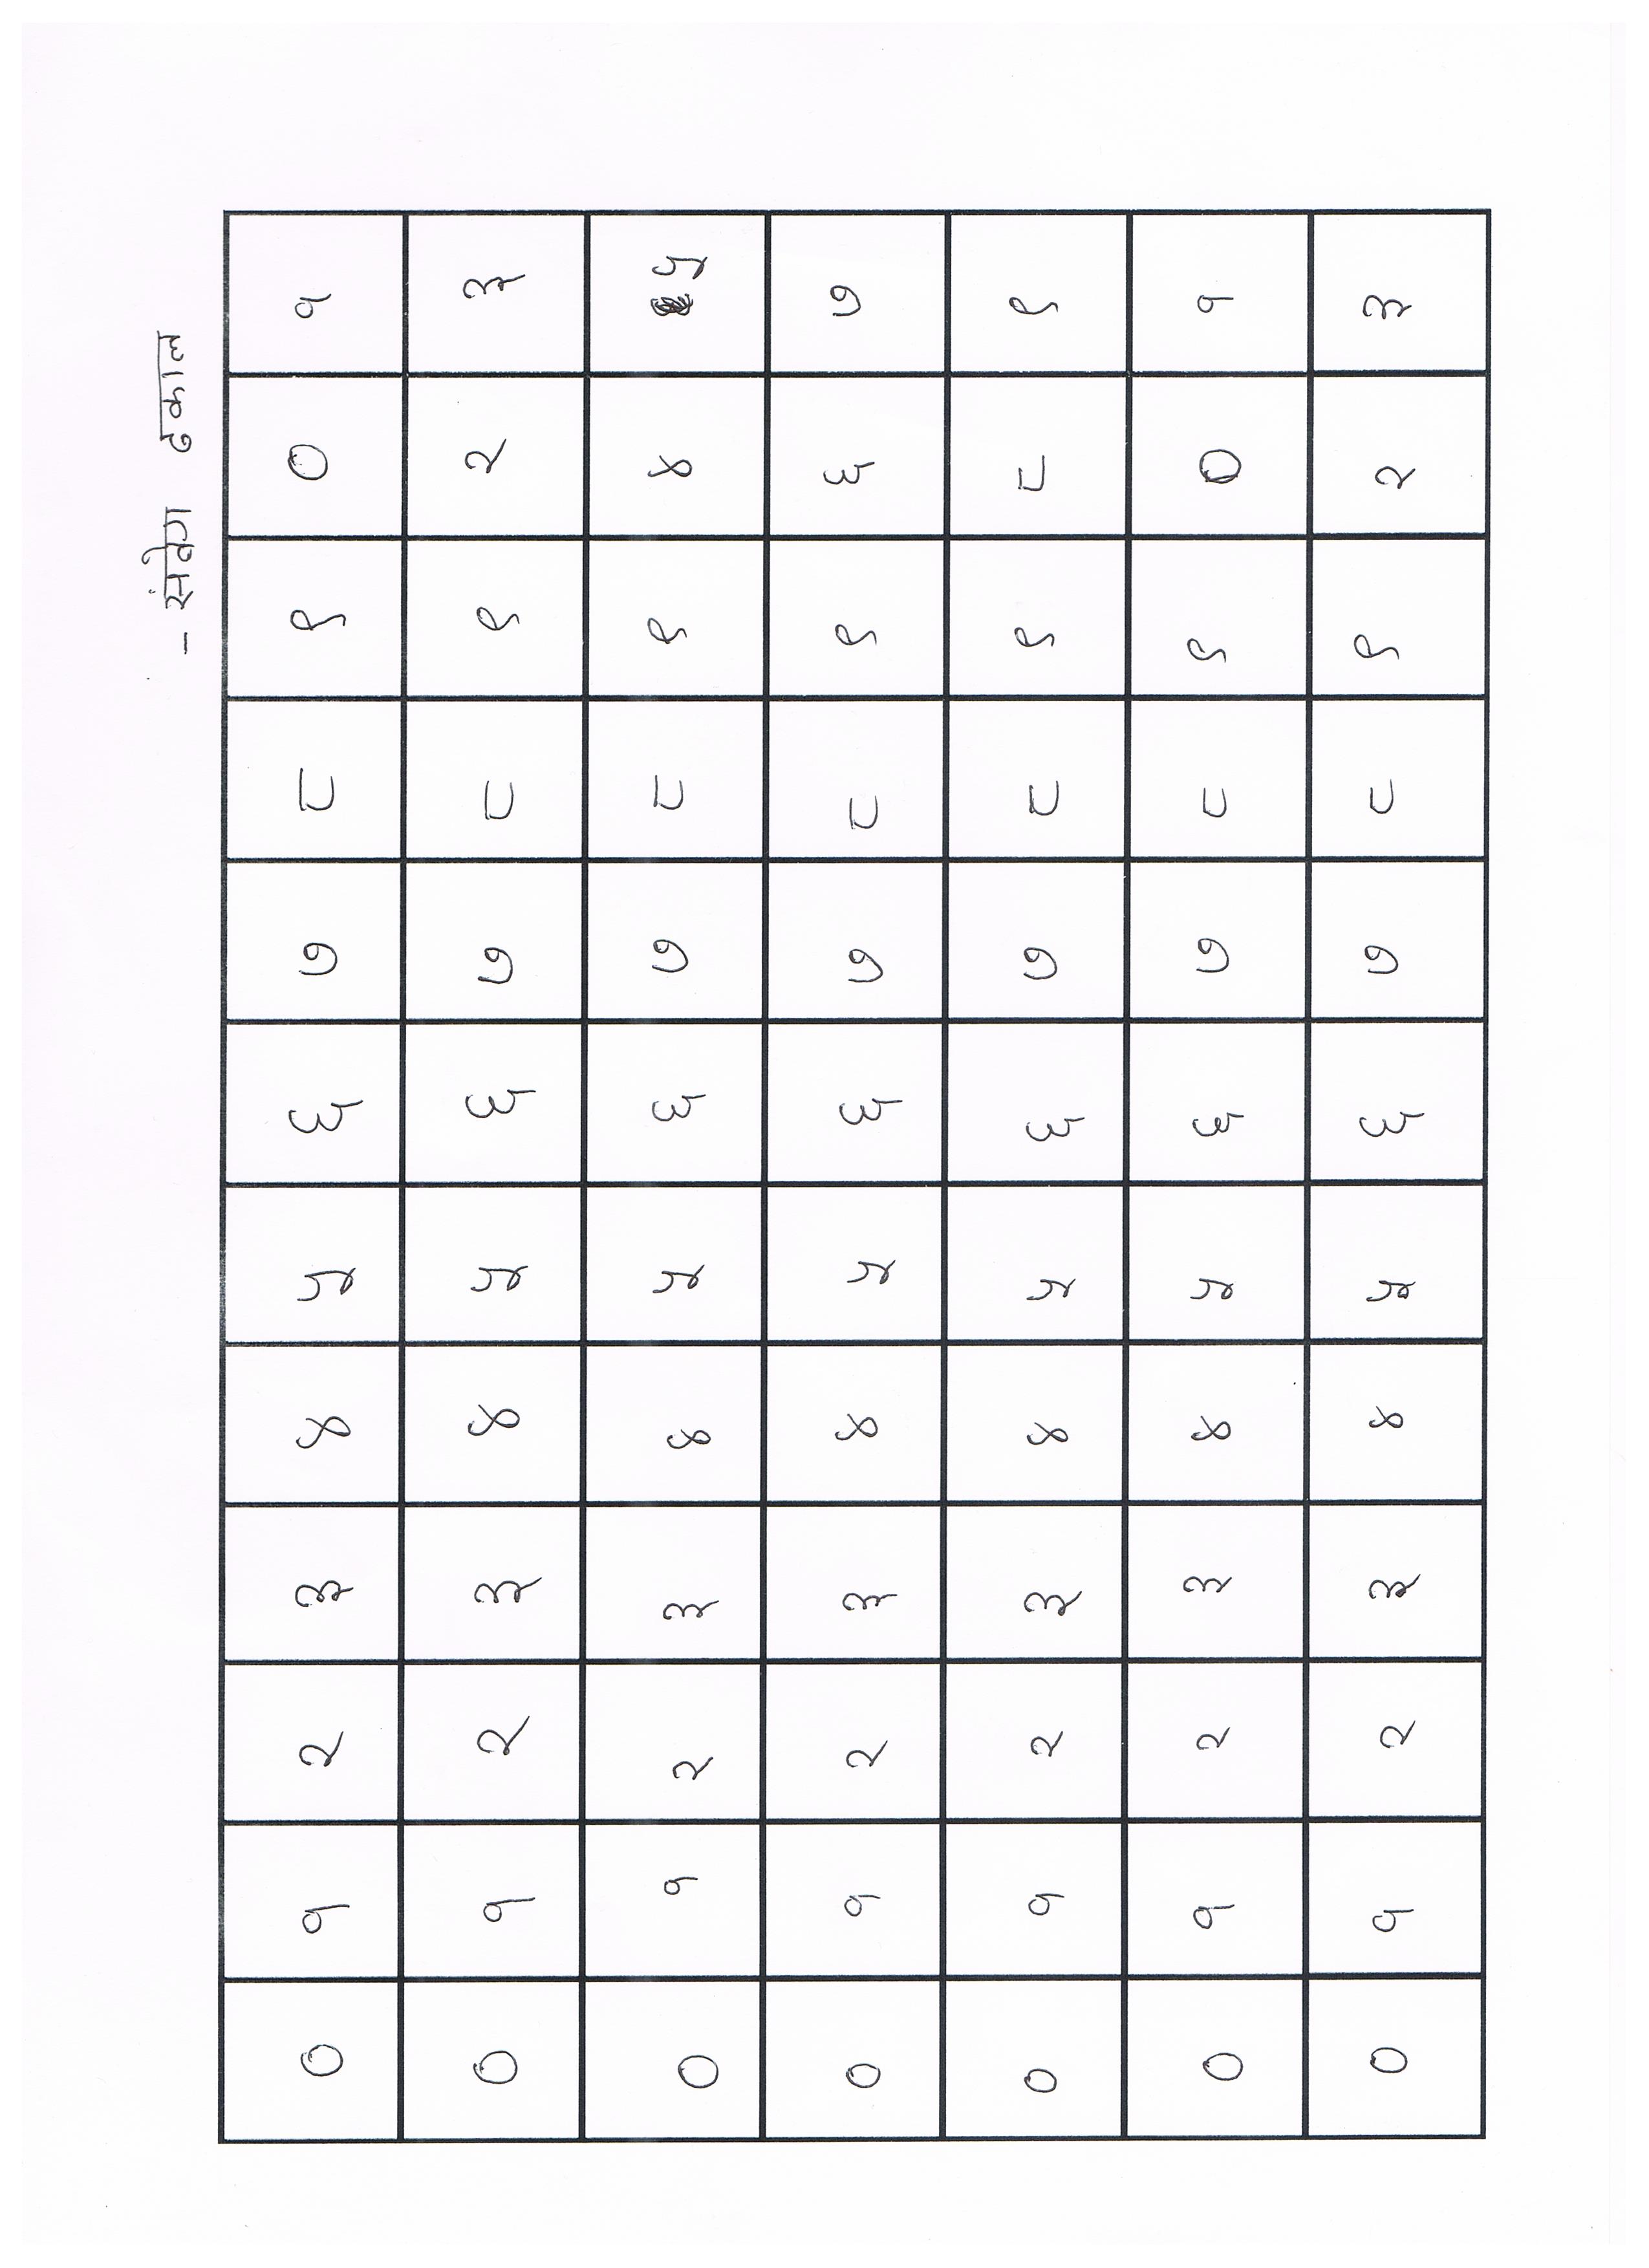 - संवेग ढकाल
० १ २ ३ ४ ५ ६ ७ ८ ९ ० १
० १ २ ३ ४ ५ ६ ७ ८ ९ २ ३
० १ २ ३ ४ ५ ६ ७ ८ ९ ४ ५
० १ २ ३ ४ ५ ६ ७ ८ ९ ६ ७
० १ २ ३ ४ ५ ६ ७ ८ ९ ८ ९
० १ २ ३ ४ ५ ६ ७ ८ ९ ० १
० १ २ ३ ४ ५ ६ ७ ८ ९ २ ३